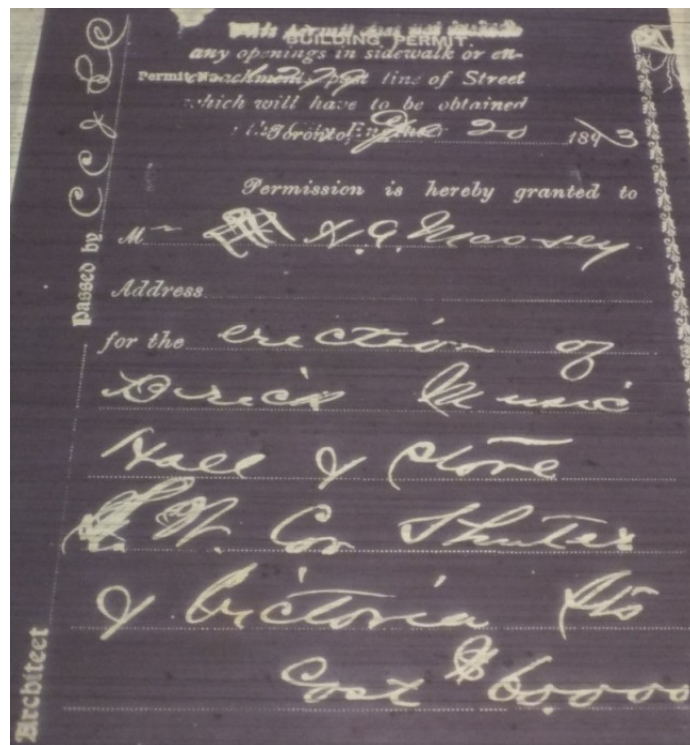 BUILDING PERMIT.
any openings in sidewalk or en-
Permit No croachments past line of Street
which will have to be obtained
Toronto, 20 1893
Permission is hereby granted to
Mr H. A. Massey
Address
for the erection of
Brick Music
Hall & store
S. W. Cor Shuter
& Victoria Sts
Cost $60.000
Passed by C C & Co
Architect